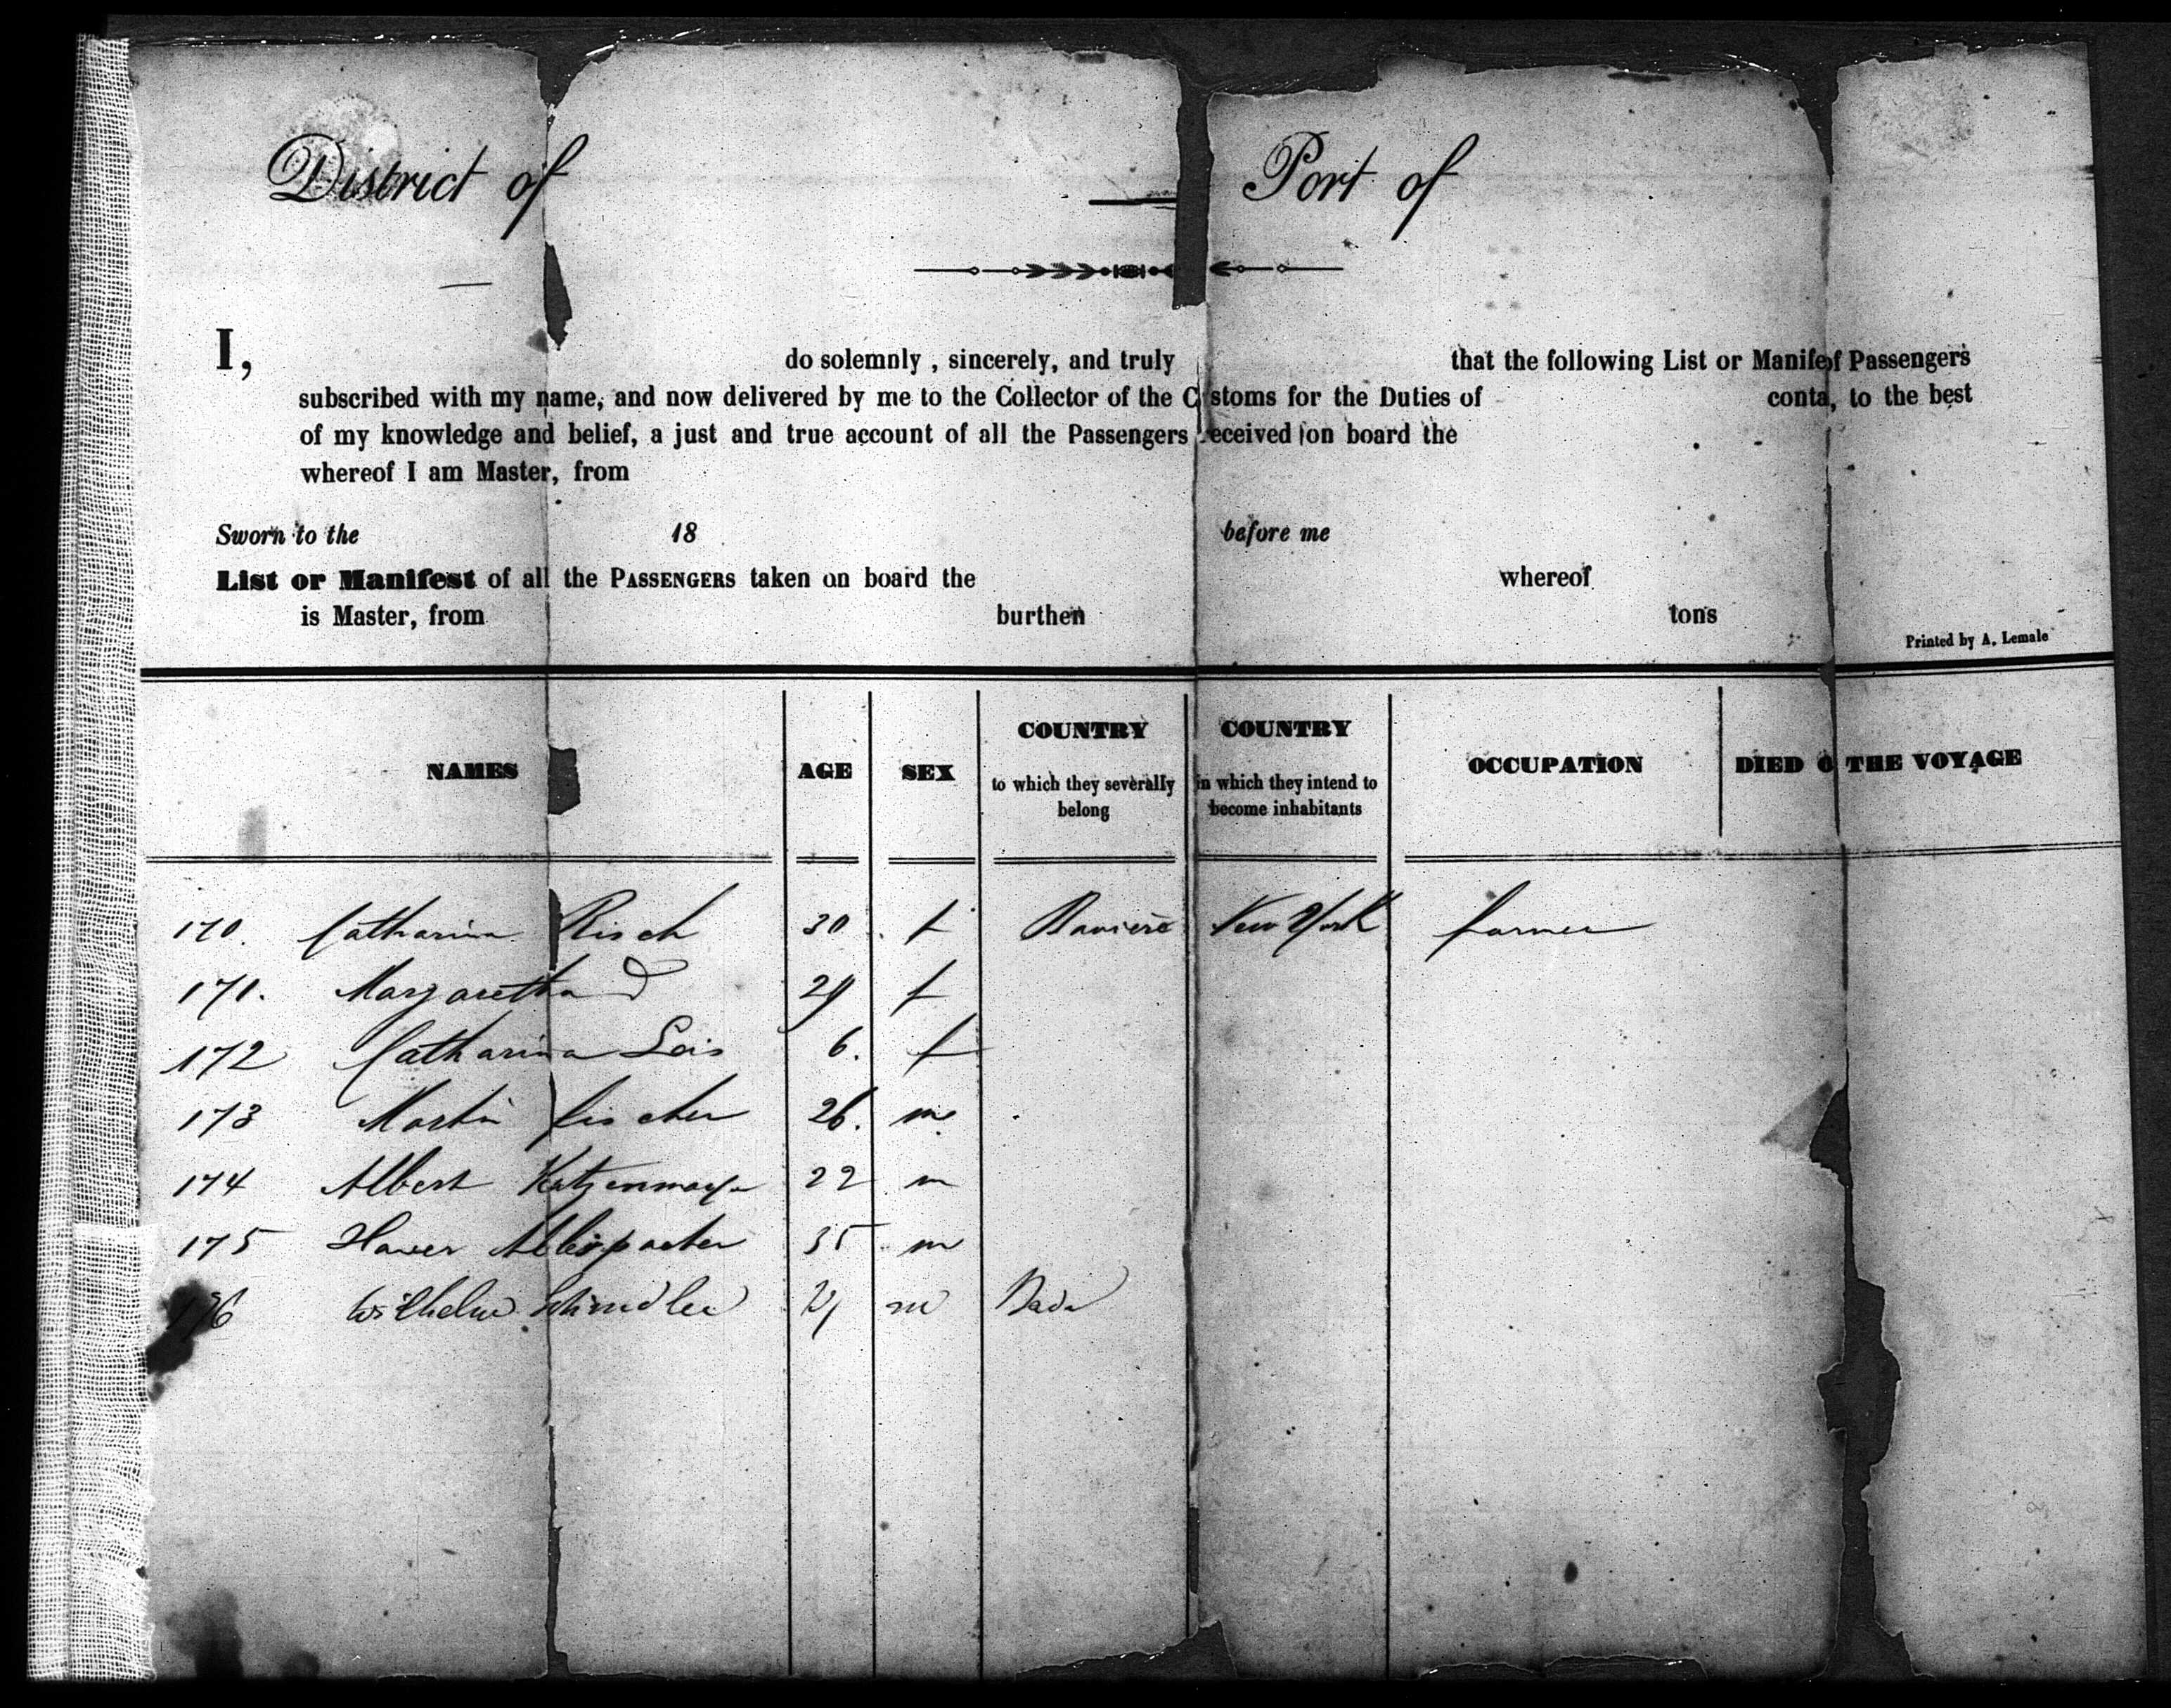 District of Port of
I, do solemnly , sincerely, and truly that the following List or Manife f Passengers
subscribed with my name, and now delivered by me to the Collector of the C stoms for the Duties of conta , to the best
of my knowledge and belief, a just and true account of all the Passengers eceived on board the
whereof I am Master, from
Sworn to the 18 before me
List or Manifest of all the PASSENGERS taken on board the whereof
is Master, from burthen tons
Printed by A. Lemale
NAMES AGE SEX COUNTRY to which they severally belong COUNTRY in which they intend to become inhabitants OCCUPATION DIED O THE VOYAGE
170. Catharina Risch 30 f Baviere New York farmer
171. Margaretha d 29 f
172 Catharina Lois 6. f
173 Martin fischer 26. m
174 Albert Katzenmayer 22 m
175 Xaver 35 m
176 Wilhelm Schindler m Bade